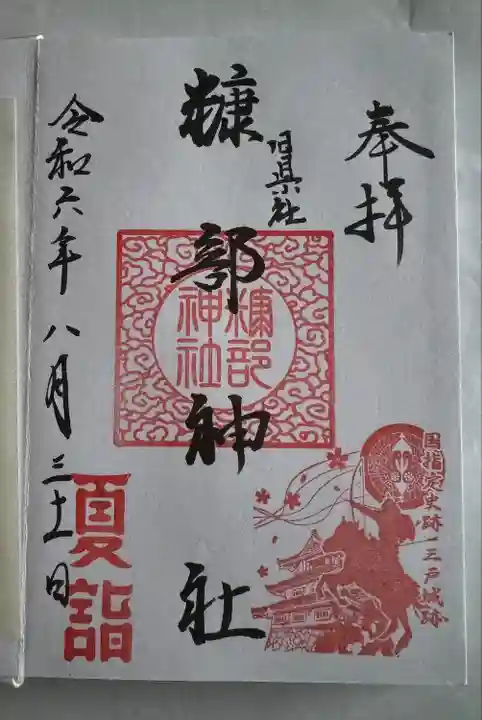 奉拝
旧県社
糠部神社
糠部
神社
国指定史跡 三戸城跡
夏詣
令和六年八月三十一日